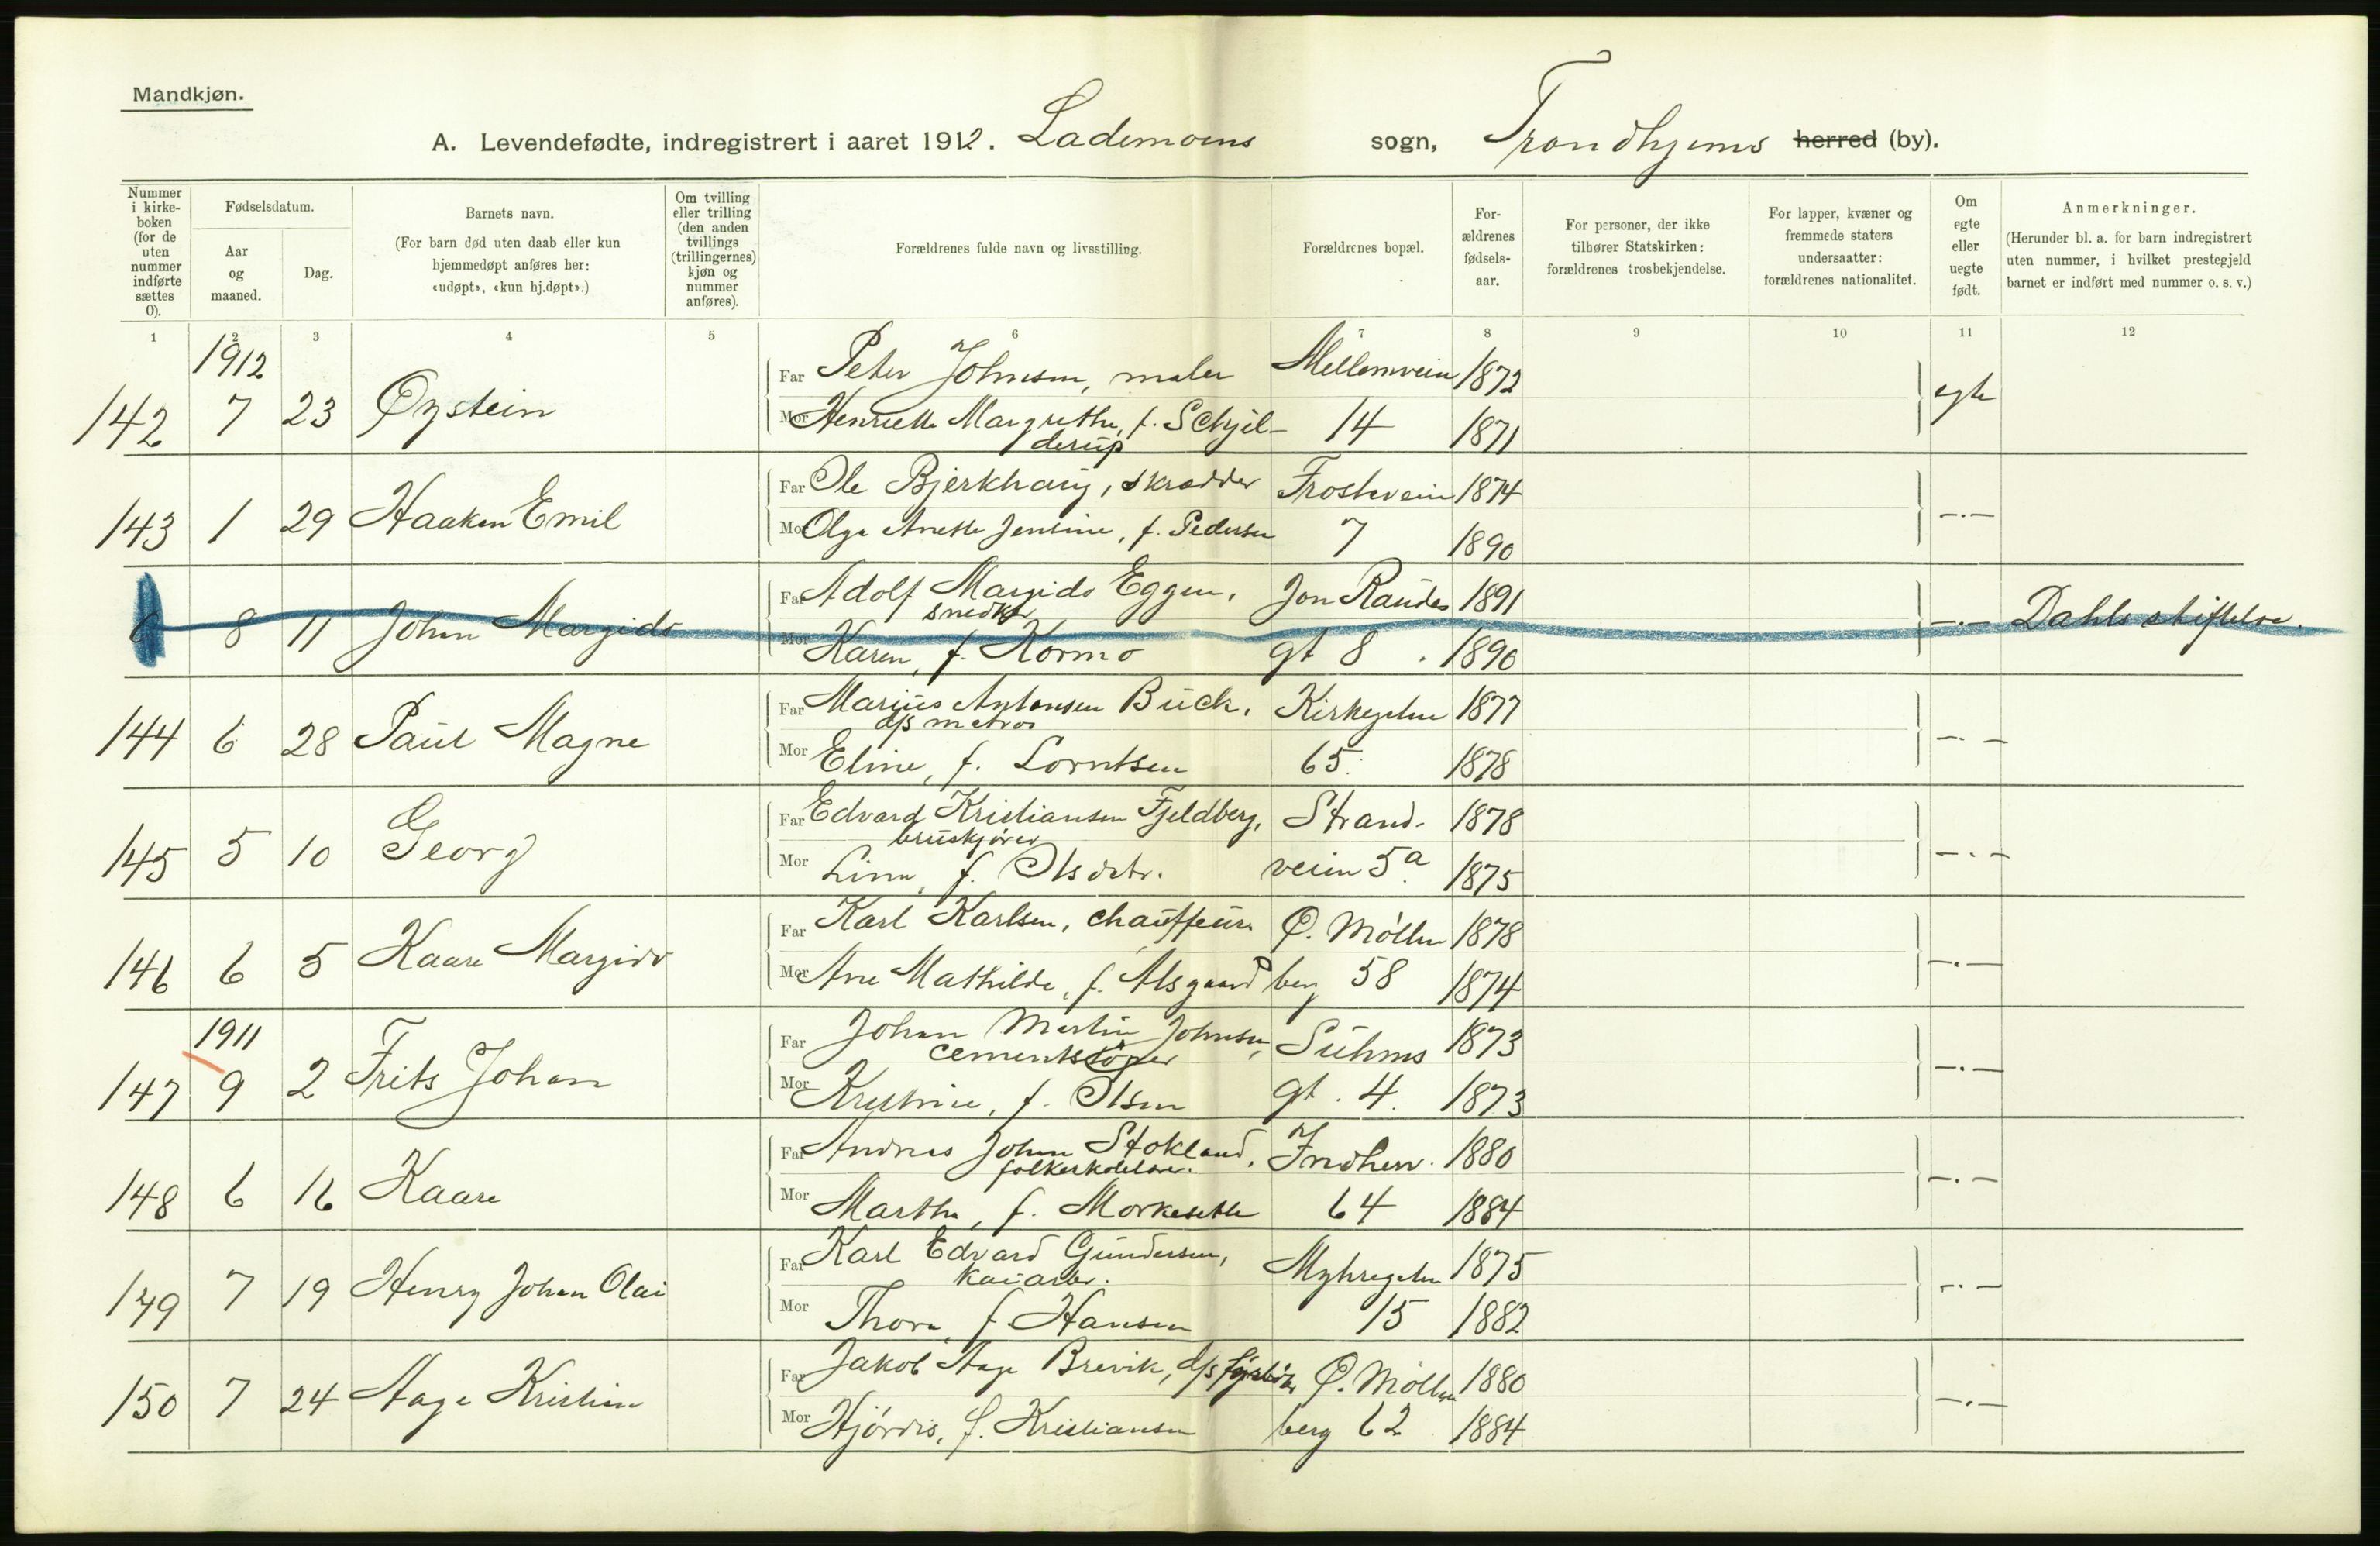 Mandkjøn.
A. Levendefødte, indregistrert i aaret 1912. Lademoens sogn, Trondhjems herred (by).
Nummer i kirke-boken (for de uten nummer indførte sættes 0).
Fødselsdatum.
Aar og maaned.
Dag.
Barnets navn.
(For barn død uten daab eller kun hjemmedøpt anføres her: «udøpt», «kun hj.døpt».)
Om tvilling eller trilling (den anden tvillings (trillingernes) kjøn og nummer anføres).
Forældrenes fulde navn og livsstilling.
Forældrenes bopæl.
For-ældrenes fødsels-aar.
For personer, der ikke tilhører Statskirken: forældrenes trosbekjendelse.
For lapper, kvæner og fremmede staters undersaatter: forældrenes nationalitet.
Om egte eller uegte født.
Anmerkninger.
(Herunder bl. a. for barn indregistrert uten nummer, i hvilket prestegjeld barnet er indført med nummer o. s. v.)
1 2 3 4 5 6 7 8 9 10 11 12
1912
142 7 23 Øystein Far Peter Johnsen, maler Mellemveien 1872 egte
Mor Henriette Margrethe, f. Schjel- 14 1871
derup
143 1 29 Haaken Emil Far Ole Bjerkhaug, skrædder Frostavein 1874 —.—
Mor Olga Anette Jensine, f. Pedersen 7 1890
0 8 11 Johan Margido Far Adolf Margido Eggen, Jon Raudes 1891 —.— Dahls stiftelse.
snedker
Mor Karen, f. Kormo gt 8. 1890
144 6 28 Paul Magne Far Marius Antonsen Buck, Kirkegaten 1877 —.—
d/s matros
Mor Eline, f. Lorntsen 65. 1878
145 5 10 Georg Far Edvard Kristiansen Fjeldberg, Strand- 1878 —.—
bruskjører
Mor Lina, f. Olsdatr. veien 5a. 1875
146 6 5 Kaare Margido Far Karl Karlsen, chauffeur. Ø. Møllen 1878 —.—
Mor Ane Mathilde, f. Alsgaard berg 58 1874
1911
147 9 2 Frits Johan Far Johan Martin Johnsen, Suhms 1873 —.—
cementstøper
Mor Kristine, f. Olsen gt. 4. 1873
148 6 16 Kaare Far Andreas Johan Stokland, Indherv. 1880 —.—
folkeskolelær.
Mor Marthe, f. Morkesette 64 1884
149 7 19 Henry Johan Olai Far Karl Edvard Gundersen, Myhregaten 1875 —.—
kaiarb.
Mor Thora, f. Hansen 15 1882
150 7 24 Aage Kristian Far Jakob Aage Brevik, d/s fyrbøter Ø. Møllen 1880 —.—
Mor Hjørdis, f. Kristiansen berg 62 1884